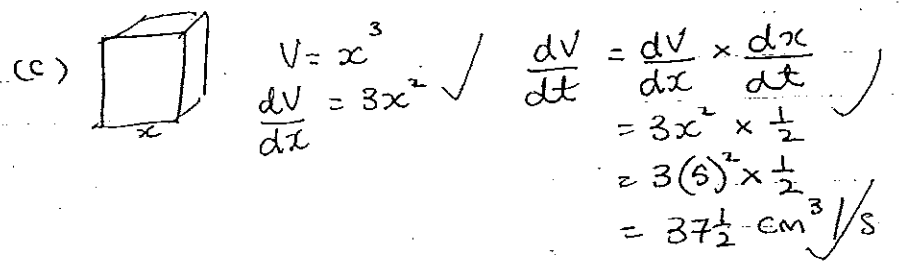 (c)
x
V = x³
dV/dx = 3x²
dV/dt = dV/dx × dx/dt
= 3x² × 1/2
= 3(5)² × 1/2
= 37 1/2 cm³/s